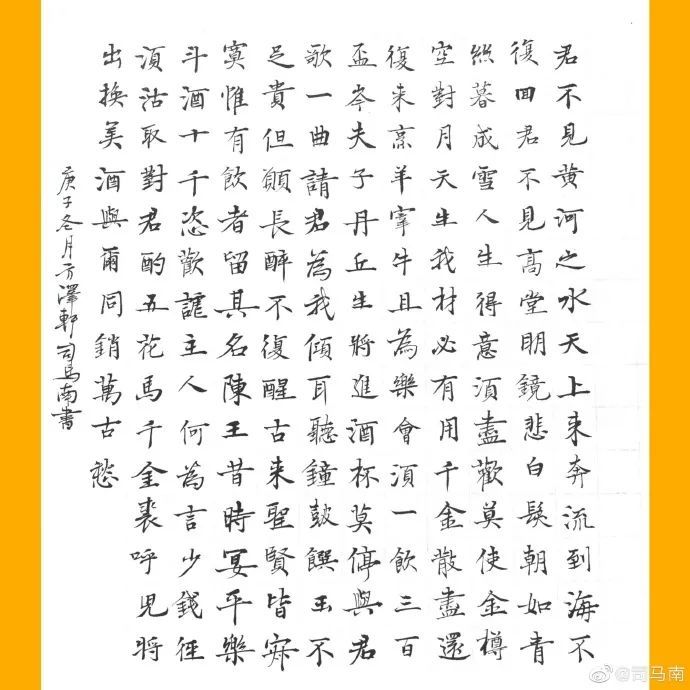 君不見黄河之水天上来奔流到海不
復回君不見高堂明鏡悲白髮朝如青
絲暮成雪人生得意須盡歡莫使金樽
空對月天生我材必有用千金散盡還
復来烹羊宰牛且為樂會須一飲三百
盃岑夫子丹丘生將進酒杯莫停與君
歌一曲請君為我傾耳聽鐘鼓饌玉不
足貴但願長醉不復醒古来聖賢皆寂
寞惟有飲者留其名陳王昔時宴平樂
斗酒十千恣歡謔主人何為言少錢徑
須沽取對君酌五花馬千金裘呼児將
出換美酒與爾同銷萬古愁
庚子冬月方澤軒司馬南書
@司马南